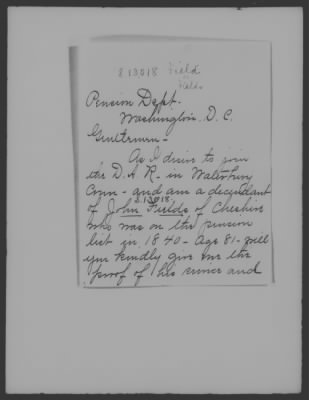 S 13018 Field
or
Fields
Pension Dept.
Washington. D. C.
Gentlemen -
As I desire to join
the D. A. R. in Waterbury
Conn - and am a decendant
S.13018
of John Fields of Cheshire
who was on the pension
list in 1840 - Age 81 - will
you kindly give me the
proof of his service and